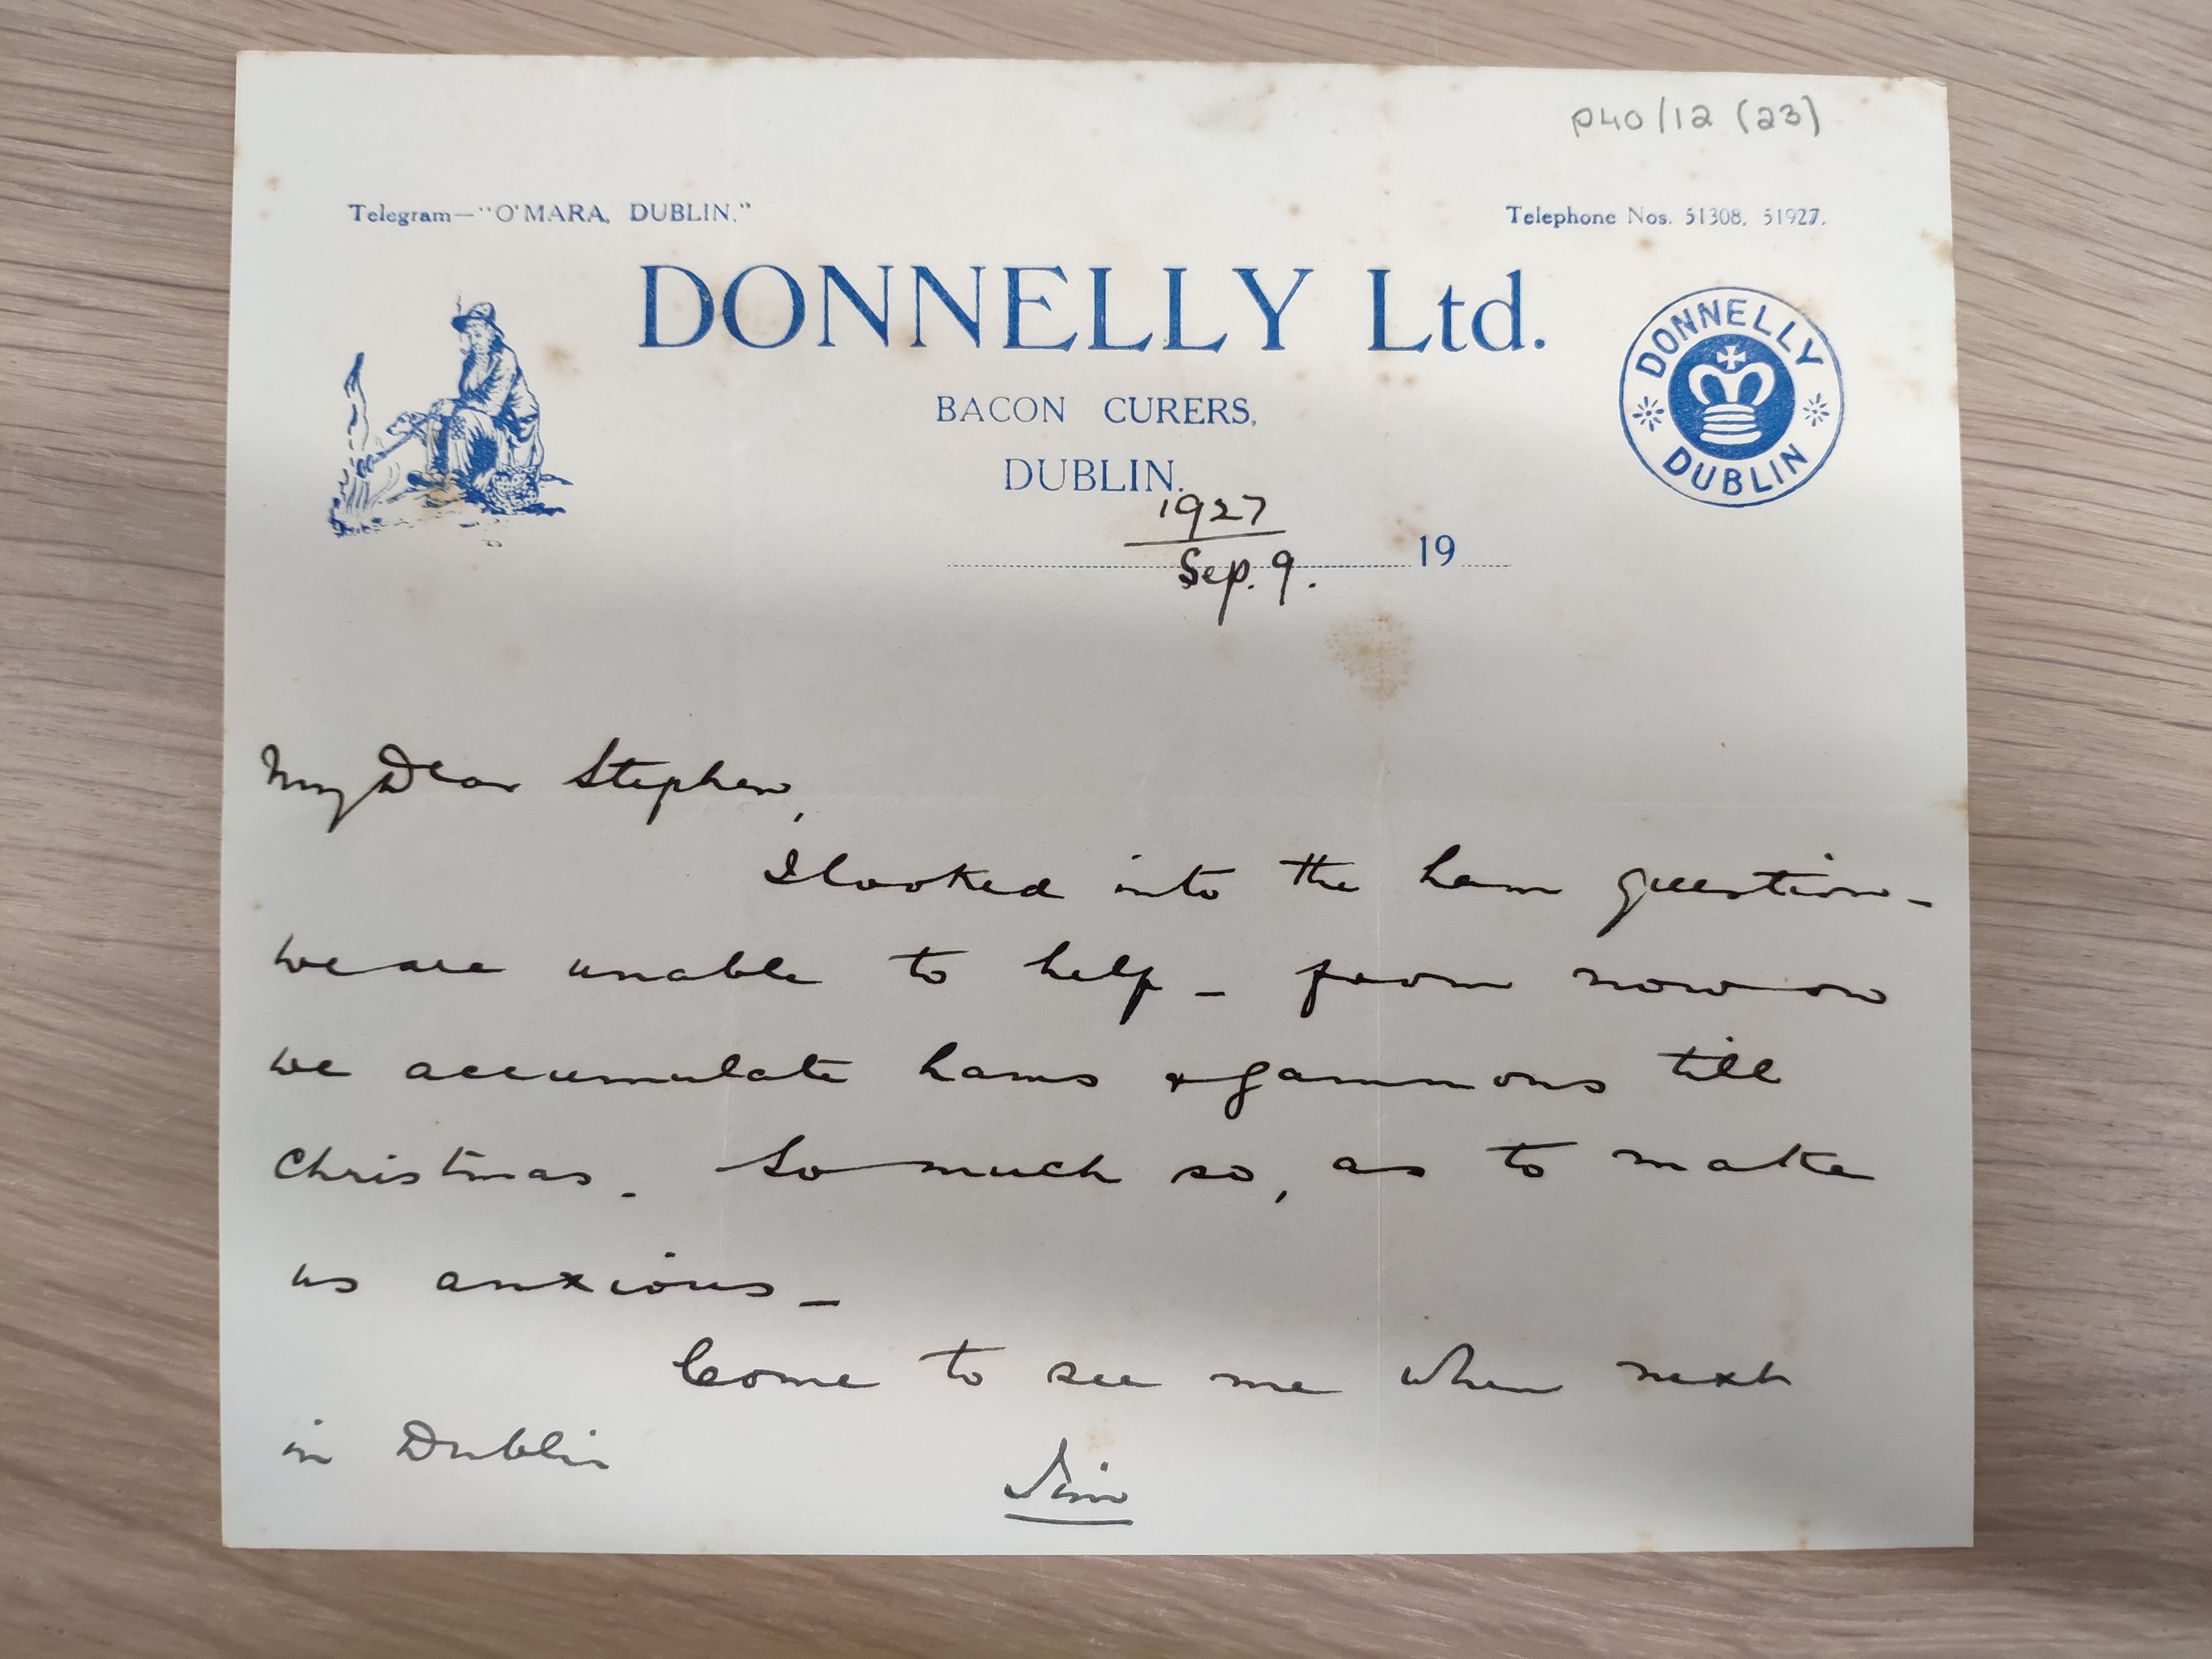 P40/12 (23)
Telegram—"O'MARA, DUBLIN."
Telephone Nos. 51308, 51927.
DONNELLY Ltd.
BACON CURERS,
DUBLIN.
DONNELLY
DUBLIN
1927
Sep. 9.
19
My Dear Stephen,
I looked into the ham question -
we are unable to help - from now on
we accumulate hams & gammons till
Christmas. So much so, as to make
us anxious -
Come to see me when next
in Dublin
Jim